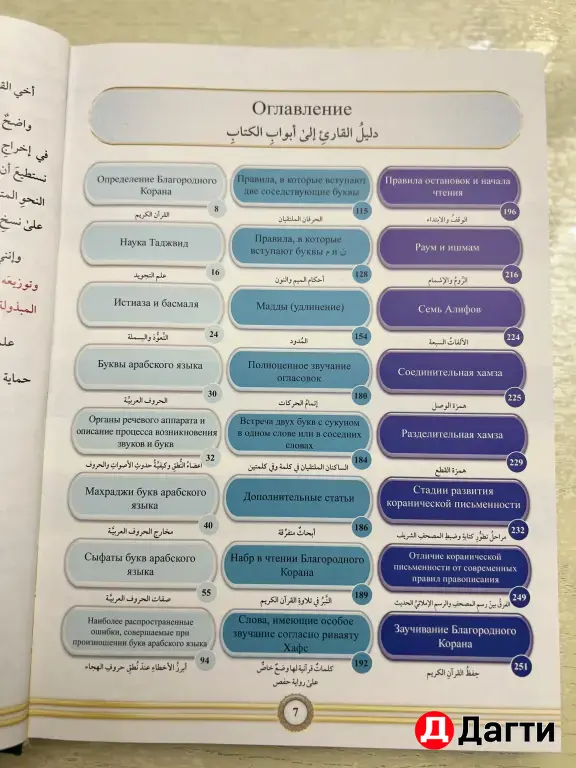 أخي
واضحٌ
في إخراج
نستطيع أن
النحو
على نسخ
وإنني
وتوزيعه
المبذولة
حماية
Оглавление
دليلُ القارئِ إلىٰ أبوابِ الكتابِ
Определение Благородного
Корана
8
القرآن الكريم
Наука Таджвид
16
علم التجويد
Истиаза и басмаля
24
التعوُّذ والبسملة
Буквы арабского языка
30
الحروف العربيَّة
Органы речевого аппарата и
описание процесса возникновения
звуков и букв
32
أعضاءُ النُّطقِ وكيفيَّةُ حدوثِ الأصواتِ والحروف
Махраджи букв арабского
языка
40
مخارج الحروف العربيَّة
Сыфаты букв арабского
языка
55
صفات الحروف العربيَّة
Наиболее распространенные
ошибки, совершаемые при
произношении букв арабского языка
94
أبرزُ الأخطاءِ عندَ نُطقِ حروفِ الهجاء
Правила, в которые вступают
две соседствующие буквы
115
الحرفان الملتقيان
Правила, в которые
вступают буквы م и ن
128
أحكام الميم والنون
Мадды (удлинение)
154
المُدود
Полноценное звучание
огласовок
180
إتمامُ الحركات
Встреча двух букв с сукуном
в одном слове или в соседних
словах
184
الساكنان الملتقيان في كلمة وفي كلمتين
Дополнительные статьи
186
أبحاثٌ متفرِّقة
Набр в чтении Благородного
Корана
189
النَّبْرُ في تلاوةِ القرآنِ الكريم
Слова, имеющие особое
звучание согласно риваяту
Хафс
192
كلماتٌ قرآنية لها وضعٌ خاصٌّ
علىٰ رواية حفص
Правила остановок и начала
чтения
196
الوقفُ والابتداء
Раум и ишмам
216
الرَّومُ والإشمام
Семь Алифов
224
الألفاتُ السبعة
Соединительная хамза
225
همزة الوصل
Разделительная хамза
229
همزة القطع
Стадии развития
коранической письменности
232
مراحلُ تطوُّرِ كتابةِ وضبطِ المصحفِ الشريف
Отличие коранической
письменности от современных
правил правописания
249
الفرقُ بينَ رسمِ المصحفِ والرسمِ الإملائيِّ الحديث
Заучивание Благородного
Корана
251
حفظُ القرآنِ الكريم
7
Д Дагти